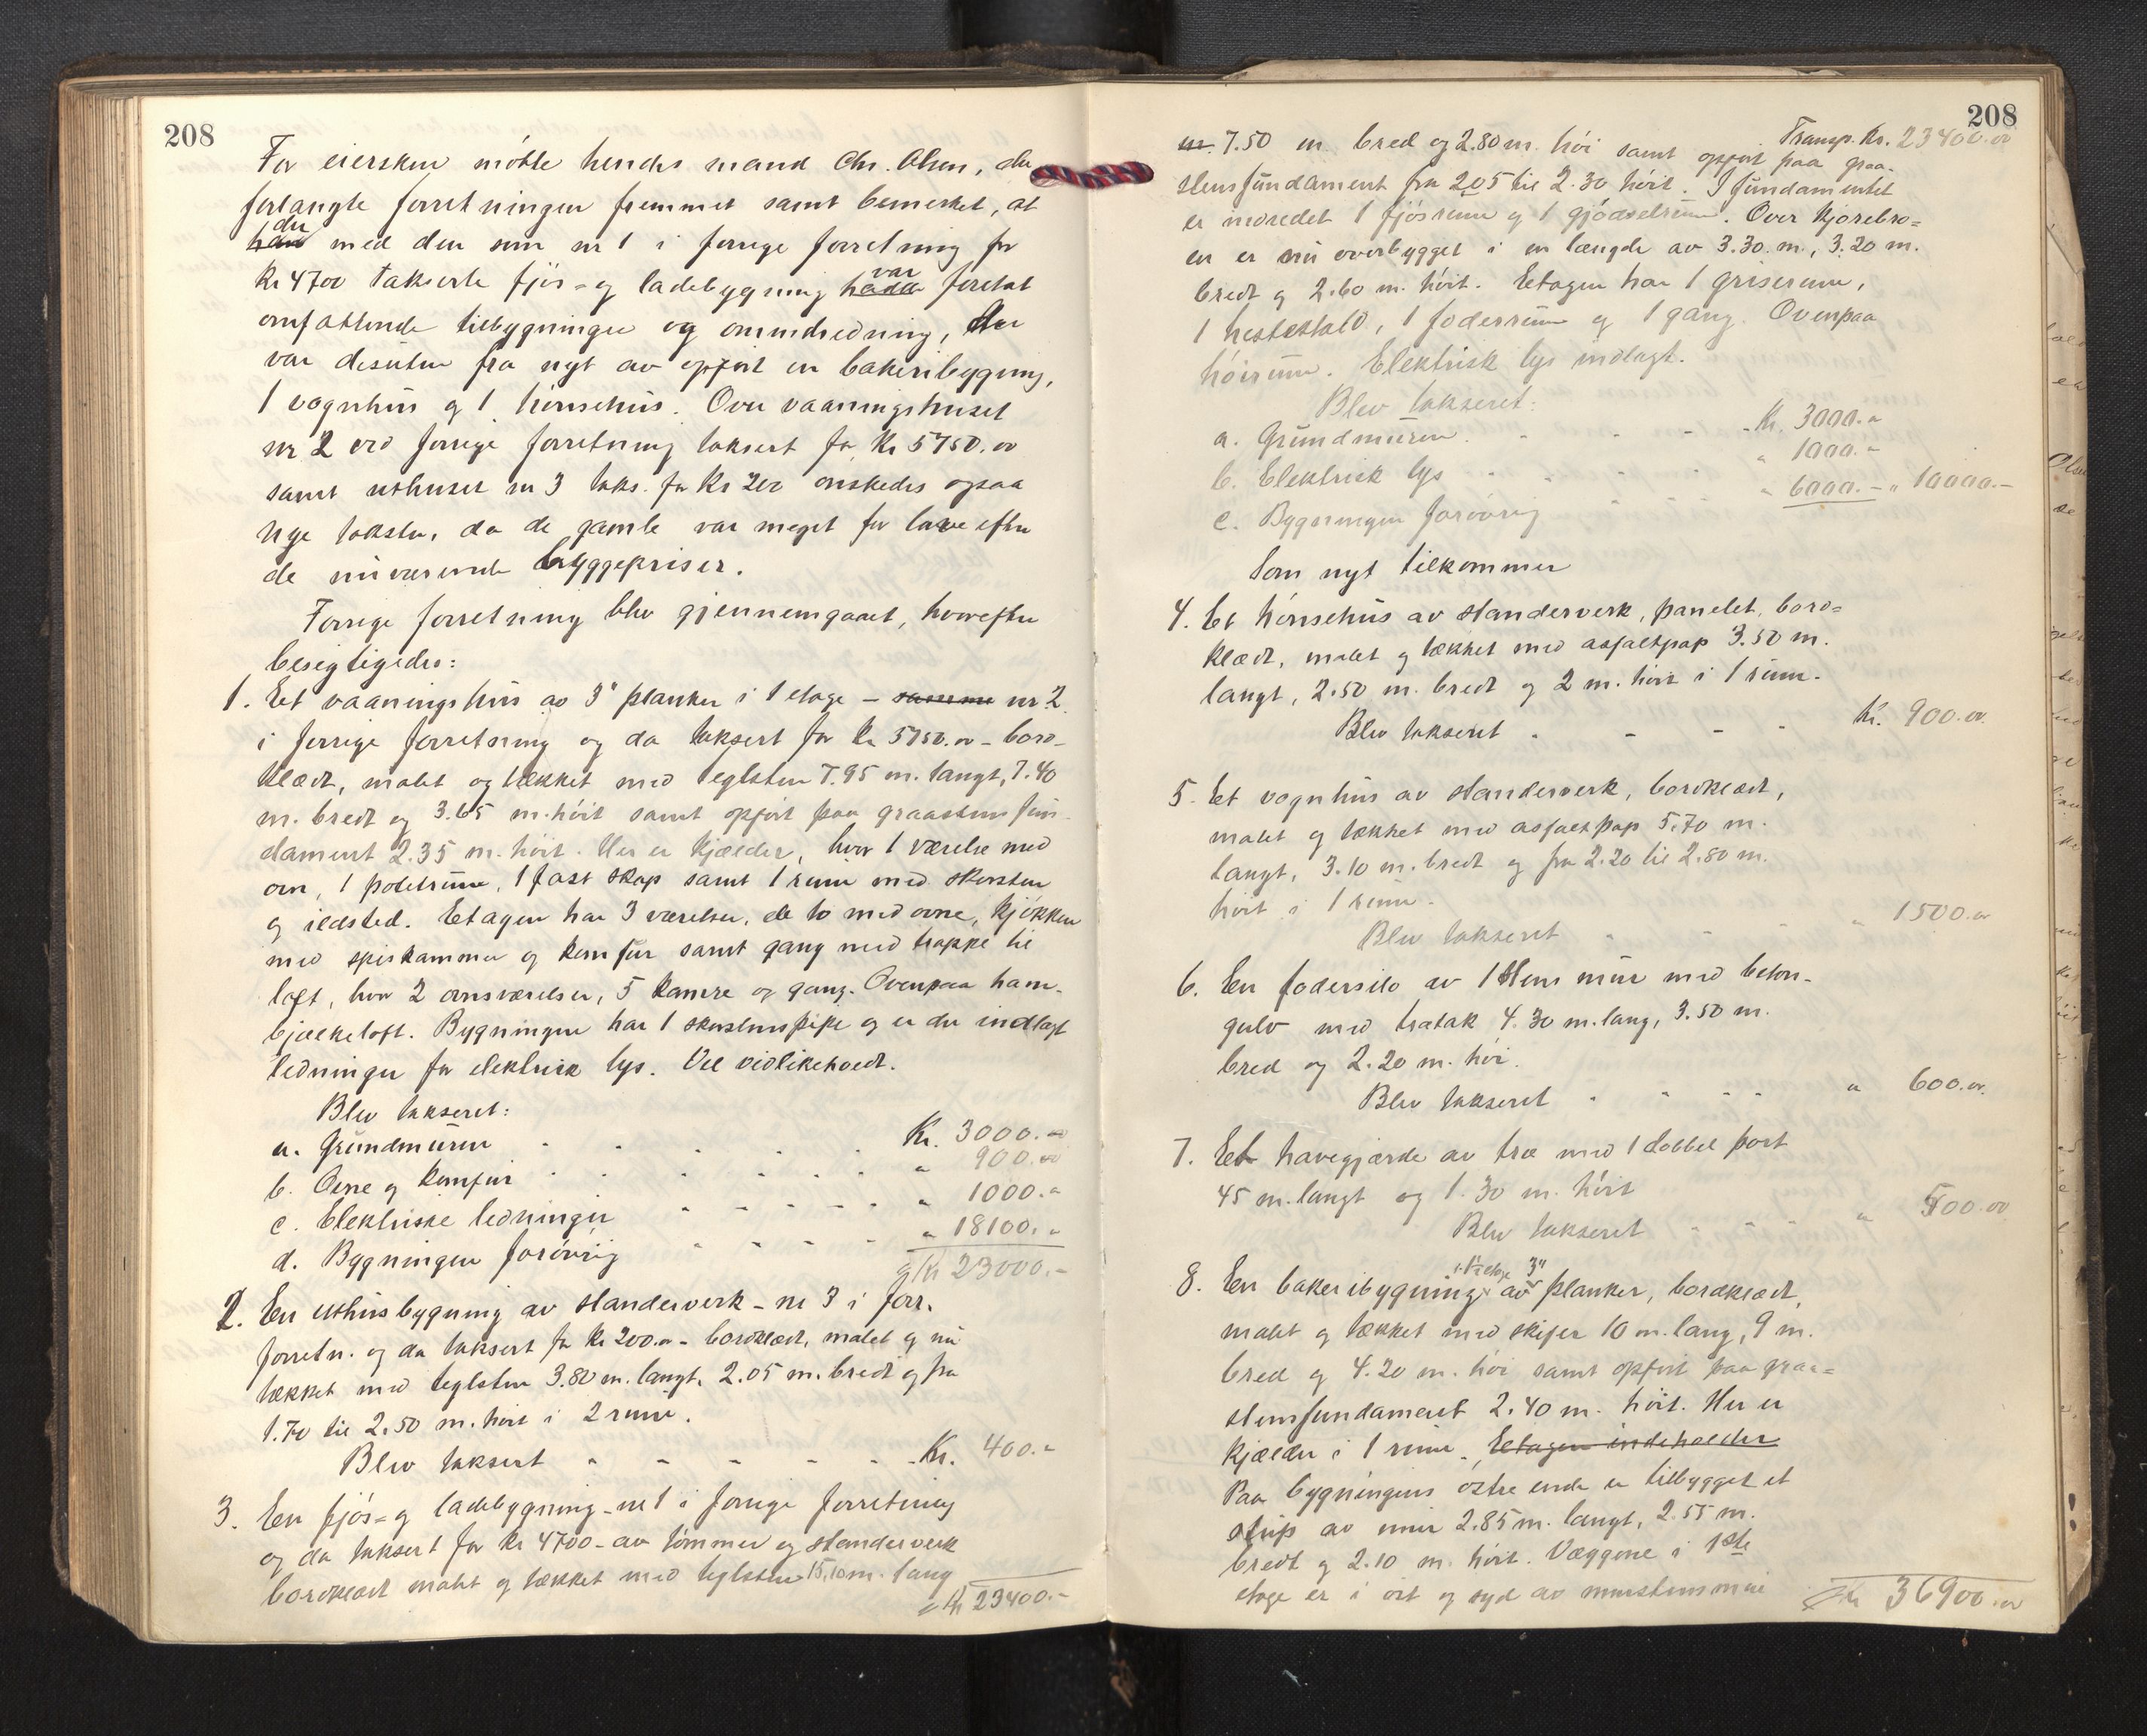 208
For eiersken møtte hendes mand Chr. Olsen, der
forlangte forretningen fremmet samt bemerket, at
der
han med den som nr 1 i forrige forretning for
Kr 4700 takserte fjös- og ladebygning var
hadde foretat
omfattende tilbygninger og omindredning, der
var desuten fra nyt av opfört en bakeribygning,
1 vognhus og 1 hönsehus. Over vaaningshuset
nr 2 ved forrige forretning taksert for Kr 5750.00
samt uthuset nr 3 taks. for Kr 200 önskedes ogsaa
nye takster, da de gamle var meget for lave efter
de nuværende byggepriser.
Forrige forretning blev gjennemgaaet, hvorefter
besigtigedes:
1. Et vaaningshus av 3" planker i 1 etage - samme nr 2
i forrige forretning og da taksert for Kr 5750.00 - bord-
klædt, malet og tækket med teglsten 7.95 m. langt, 7.40
m. bredt og 3.65 m. höit samt opfört paa graastensfun-
dament 2.35 m. höit. Her er kjælder, hvor 1 værelse med
ovn, 1 potetrum, 1 fast skap samt 1 rum med skorsten
og ildsted. Etagen har 3 værelser, de to med ovne, kjökken
med spiskammer og komfur samt gang med trappe til
loft, hvor 2 ovnsværelser, 5 kamre og gang. Ovenpaa hane-
bjælkeloft. Bygningen har 1 skorstenspipe og er der indlagt
ledninger for elektrisk lys. Vel vidlikeholdt.
Blev takseret:
a. Grundmuren - - - - - Kr. 3000.-
b. Ovne og komfur - - - - - " 900.00
c. Elektriske ledninger - - - - - " 1000.-
d. Bygningen forövrig - - - - " 18100.-
Kr 23000.-
2. En uthusbygning av standerverk - nr 3 i forr.
forretn. og da taksert for Kr 200.- - bordklædt, malet og nu
tækket med teglsten 3.80 m. langt, 2.05 m. bredt og fra
1.70 til 2.50 m. höit i 2 rum.
Blev taksert - - - - - Kr. 400.-
3. En fjös- og ladebygning - nr 1 i forrige forretning
og da taksert for Kr 4700 - av tömmer og standerverk
bordklædt malet og tækket med teglsten 15,10 m. lang
Kr 23400.-
208
Transp. Kr. 23400.00
m. 7.50 m bred og 2.80 m. höi samt opfört paa graa-
stensfundament fra 2.05 til 2.30 höit. I fundamentet
er indredet 1 fjösrum og 1 gjödselrum. Over kjörebro-
en er nu overbygget i en længde av 3.30. m., 3.20 m.
bredt og 2.60 m. höit. Etagen har 1 griserum,
1 hestestald, 1 foderrum og 1 gang. Ovenpaa
höirum. Elektrisk lys indlagt.
Blev takseret:
a. Grundmuren - - - - Kr. 3000.-
b. Elektrisk lys - - - - " 1000.-
c. Bygningen forövrig - - - " 6000.- " 10000.-
Som nyt tilkommer
4. Et hönsehus av standerverk, panelet, bord-
klædt, malet og tækket med asfaltpap 3.50 m.
langt, 2.50 m. bredt og 2 m. höit i 1 rum.
Blev takseret - - - - Kr. 900.00
5. Et vognhus av standerverk, bordklædt,
malet og tækket med asfaltpap 5.70 m.
langt, 3.10 m. bredt og fra 2.20 til 2.80 m.
höit i 1 rum.
Blev takseret - - - - " 1500.00
6. En fodersilo av 1 stens mur med beton-
gulv med trætak 4.30 m. lang, 3.50 m.
bred og 2.20 m. höi.
Blev takseret - - - - " 600.00
7. Et havegjærde av træ med 1 dobbel port
45 m. langt og 1.30 m. höit
Blev takseret - - - " 500.00
8. En bakeribygning i 1½ etage av 3" planker, bordklædt,
malet og tækket med skifer 10 m. lang, 9 m.
bred og 4.20 m. höi samt opfört paa graa-
stensfundament 2.40 m. höit. Her er
kjælder i 1 rum. Etagen indeholder
Paa bygningens östre ende er tilbygget et
skup av mur 2.85 m. langt, 2.55 m.
bredt og 2.10 m. höit. Væggene i 1ste
etage er i öst og syd av murstensmur
Kr 36900.00